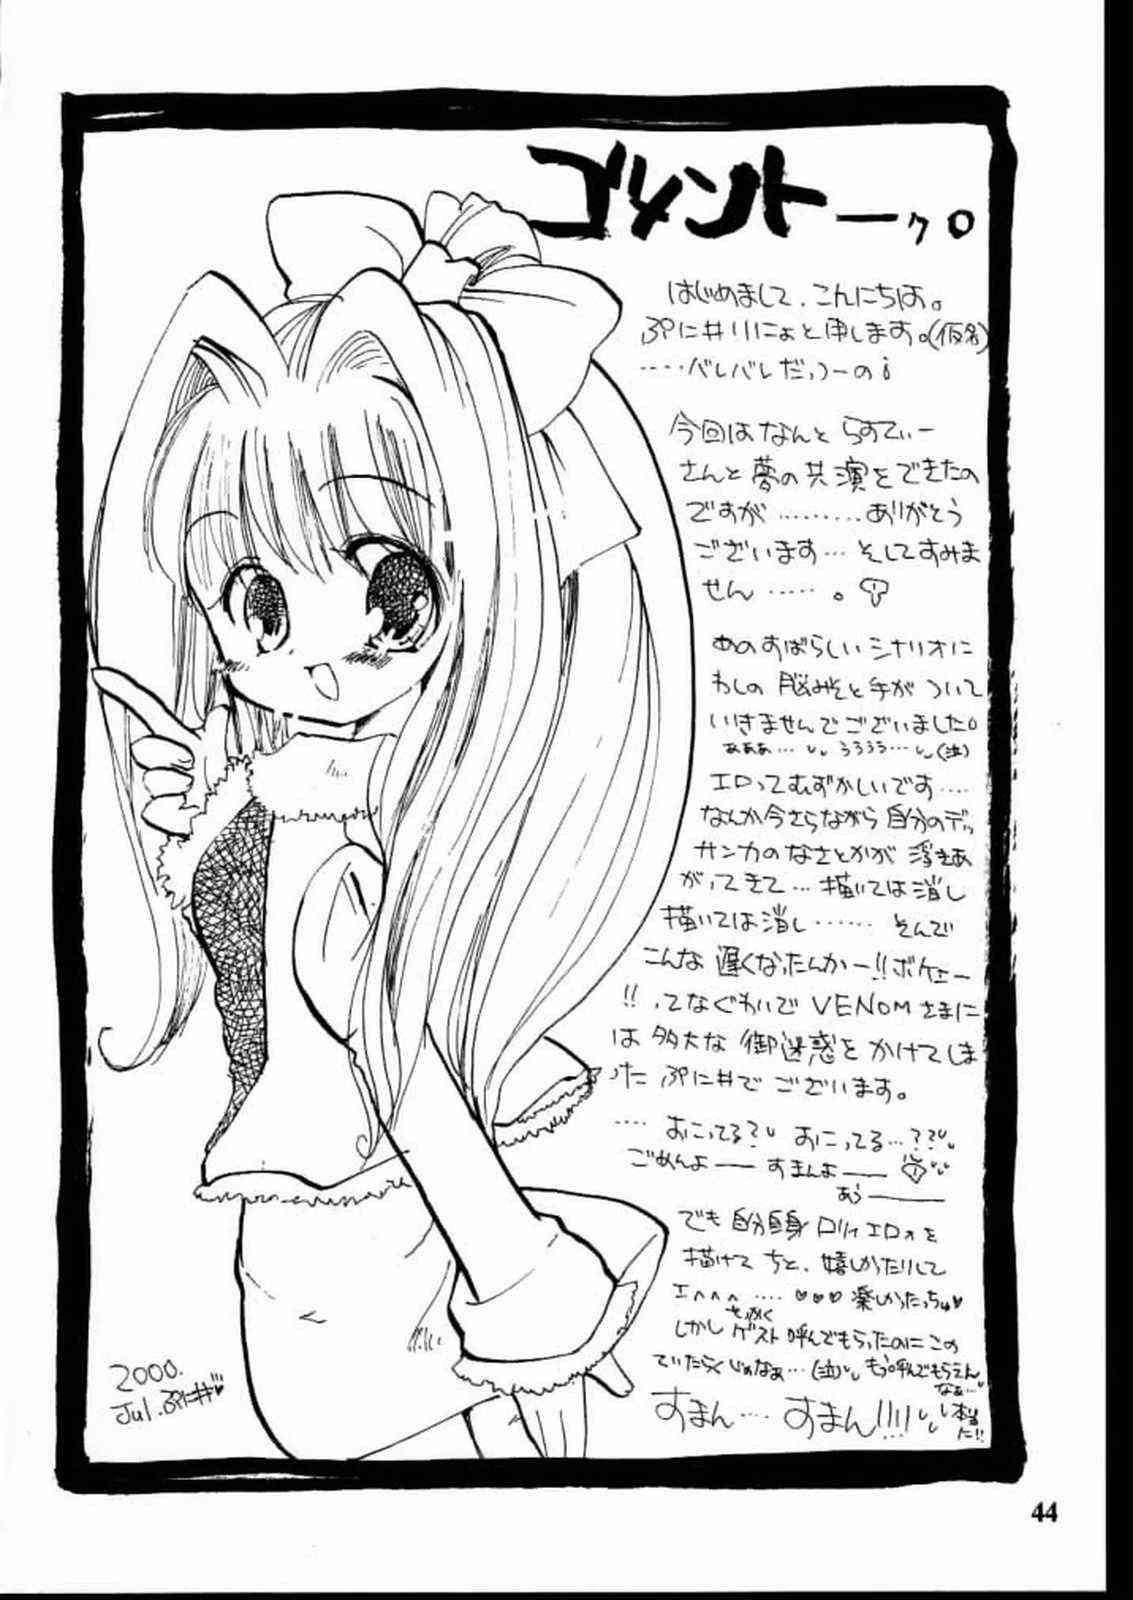 コメントーっ。
はじめまして、こんにちは。
ぷに井りにょと申します。(仮名)
‥‥バレバレだっつーの
今回はなんと らすてぃー
さんと夢の共演をできたの
ですが ‥‥‥‥ありがとう
ございます… そしてすみま
せん ‥‥‥。
あのすばらしいシナリオに
わしの脳みそと手が ついて
いきませんでございました。
あぁぁ… うううう… (泣)
エロってむずかしいです‥‥
なんか今さらながら自分のデッ
サン力のなさとかが 浮きあ
がってきて … 描いては消し
描いては消し ‥‥‥ そんで
こんな 遅くなったんかー!!ボケェー
!! ってなぐわいで VENOMさまに
は 多大な 御迷惑を かけてしま
った ぷに井で ございます。
‥‥ おこってる?? おこってる…??
ごめんよ―― すまんよ――
あう――
でも 自分自身 ロリィエロ を
描けて ちと、嬉しかったりして
エヘヘヘ ‥‥ ♡♡♡ 楽しかったっちゅ♥
しかし せっかく ゲスト 呼んでもらったのに この
ていたらくじゃなぁ…(泣) もう呼んでもらえん
なぁ…
すまん ‥‥ すまん!!!!
2000.
Jul. ぷに井♥
44